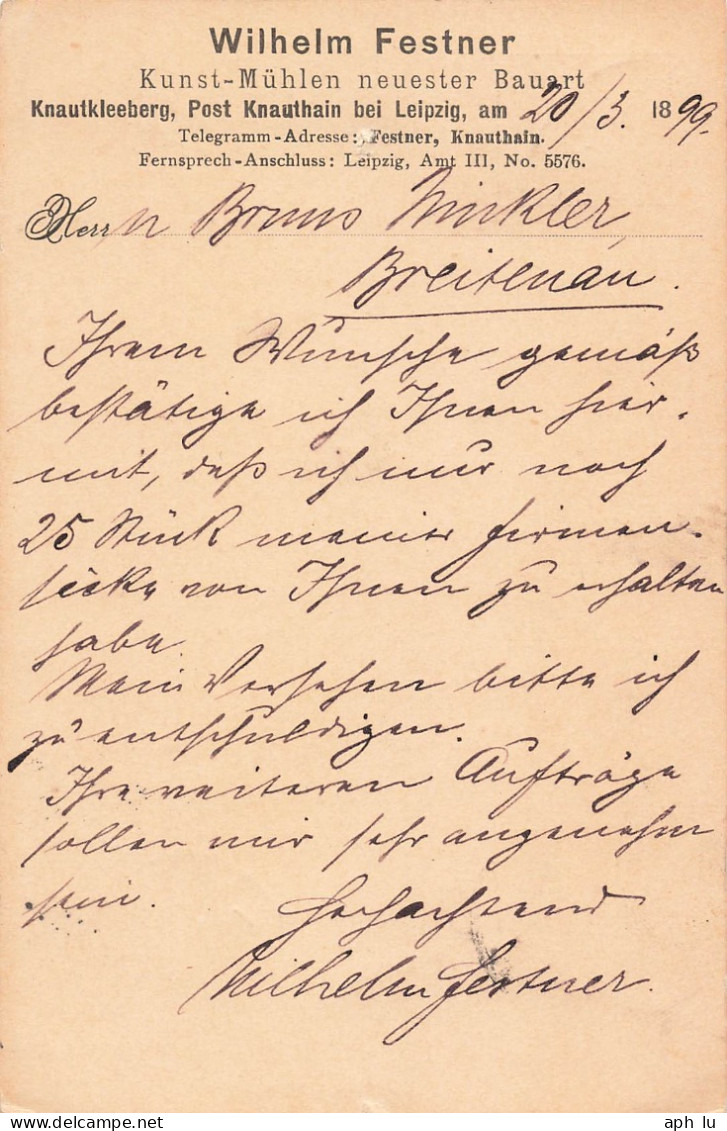 Wilhelm Festner
Kunst-Mühlen neuester Bauart
Knautkleeberg, Post Knauthain bei Leipzig, am 20/3. 1899.
Telegramm-Adresse: Festner, Knauthain.
Fernsprech-Anschluss: Leipzig, Amt III, No. 5576.
Herrn Bruno Winkler,
Breitenau.
Ihrem Wunsche gemäß
bestätige ich Ihnen hier-
mit, daß ich nur noch
25 Stück meiner Firmen-
säcke von Ihnen zu erhalten
habe.
Mein Versehen bitte ich
zu entschuldigen.
Ihre weiteren Aufträge
sollen mir sehr angenehm
sein.
Hochachtend
Wilhelm Festner.
aph lu